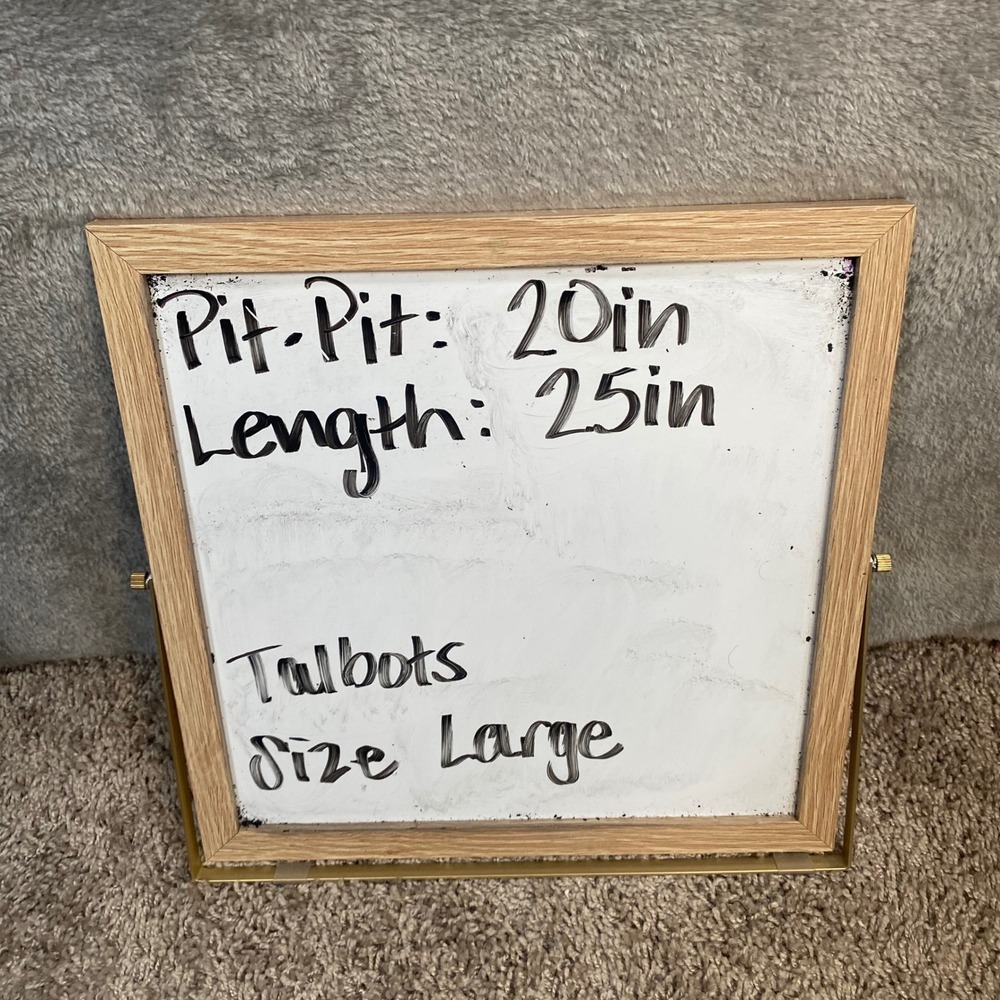 Pit-Pit: 20in
Length: 25in
Talbots
Size Large